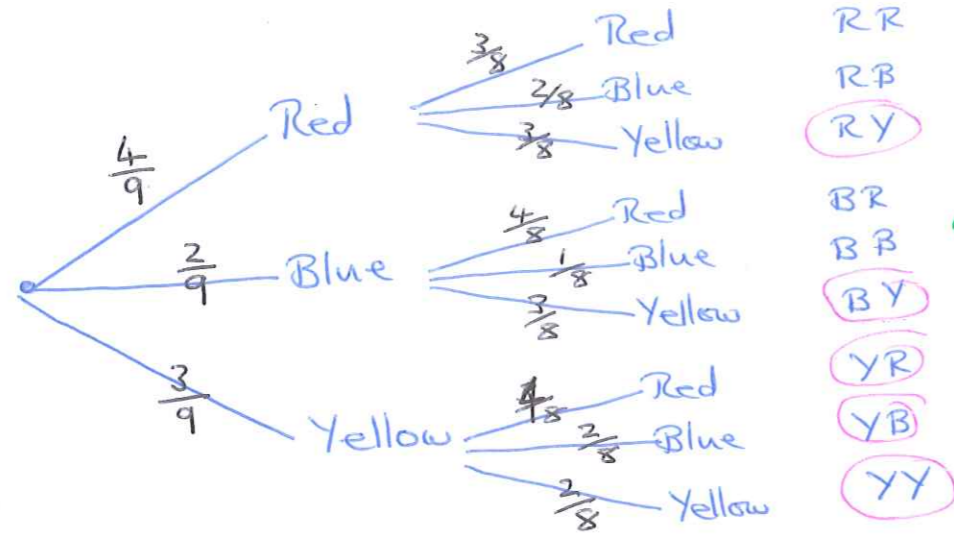 4/9 Red 3/8 Red RR
2/8 Blue RB
3/8 Yellow RY
2/9 Blue 4/8 Red BR
1/8 Blue BB
3/8 Yellow BY
3/9 Yellow 4/8 Red YR
2/8 Blue YB
2/8 Yellow YY